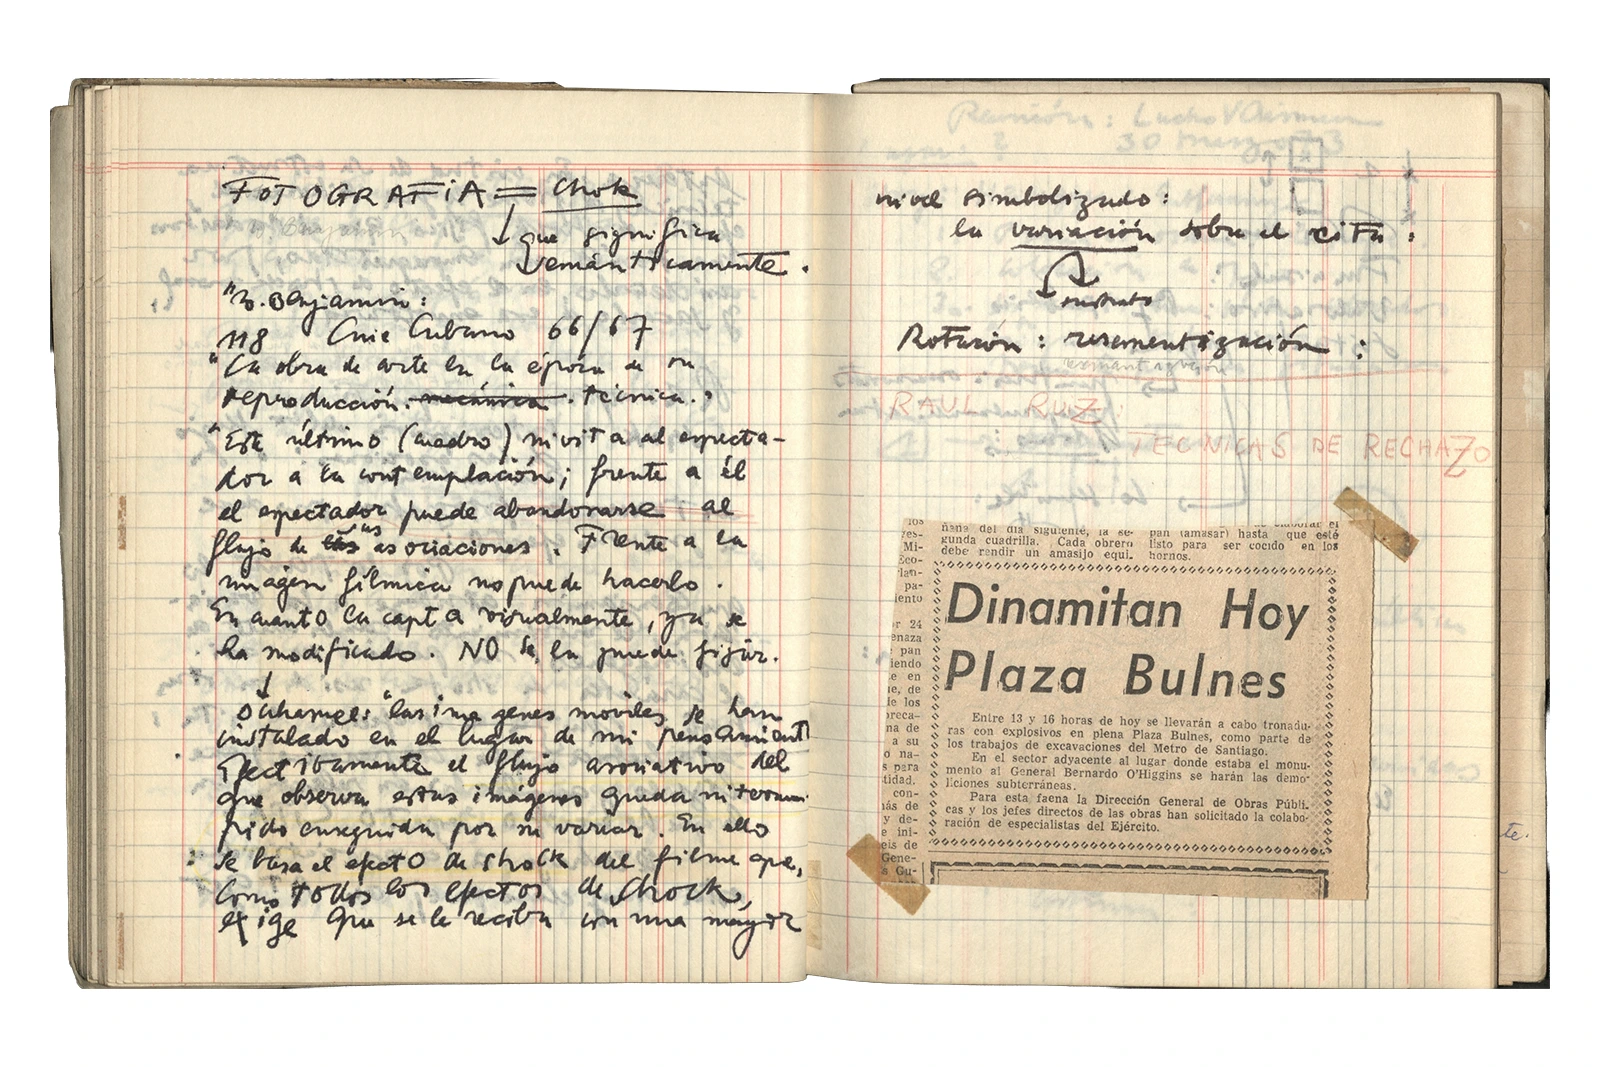 FOTOGRAFIA = Chok
que significa
semánticamente.
"W. Benjamin:
118 Cine Cubano 66/67
"La obra de arte en la época de su
reproducción. mecánica. técnica."
"Este último (cuadro) invita al especta-
dor a la contemplación; frente a él
el espectador puede abandonarse al
flujo de sus asociaciones. Frente a la
imagen fílmica no puede hacerlo.
En cuanto la capta visualmente, ya se
ha modificado. NO se la puede fijar.
Duhamel: "las imagenes moviles se han
instalado en el lugar de mi pensamiento
Efectibamente el flujo asociativo del
que observa estas imágenes queda interrum-
pido enseguida por su variar. En ello
se basa el efecto de shock del filme que,
como todos los efectos de shock,
exige que se le reciba con una mayor
Reunión: Lucho
30 Marzo 73
nivel simbolizado:
la variación sobre el cifu:
Rotación: resemantización:
RAUL RUIZ:
TECNICAS DE RECHAZO
ñana del día siguiente, la se-
gunda cuadrilla. Cada obrero
debe rendir un amasijo equi.
elaborar el
pan (amasar) hasta que esté
listo para ser cocido en los
hornos.
Dinamitan Hoy
Plaza Bulnes
Entre 13 y 16 horas de hoy se llevarán a cabo tronadu-
ras con explosivos en plena Plaza Bulnes, como parte de
los trabajos de excavaciones del Metro de Santiago.
En el sector adyacente al lugar donde estaba el monu-
mento al General Bernardo O'Higgins se harán las demo-
liciones subterráneas.
Para esta faena la Dirección General de Obras Públi-
cas y los jefes directos de las obras han solicitado la colabo-
ración de especialistas del Ejército.